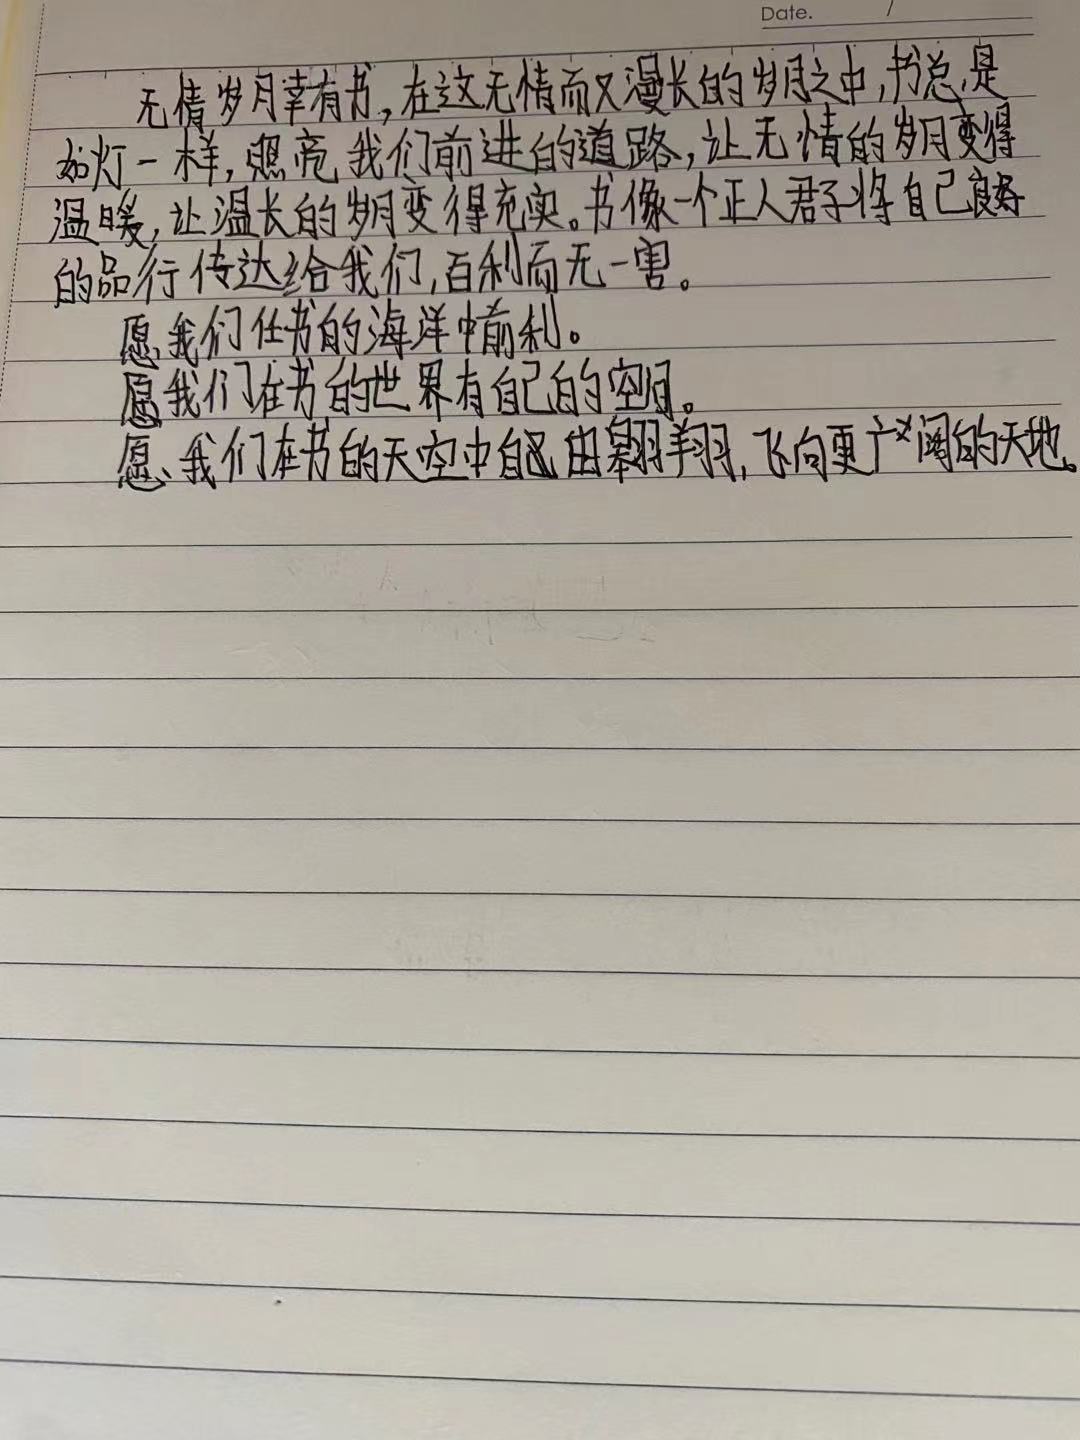 Date. /
无情岁月幸有书,在这无情而又漫长的岁月之中,书总是
如灯一样,照亮我们前进的道路,让无情的岁月变得
温暖,让温长的岁月变得充实。书像一个正人君子将自己良好
的品行传达给我们,百利而无一害。
愿我们任书的海洋中前利。
愿我们在书的世界有自己的空间。
愿我们在书的天空中自由翱翔,飞向更广阔的天地。